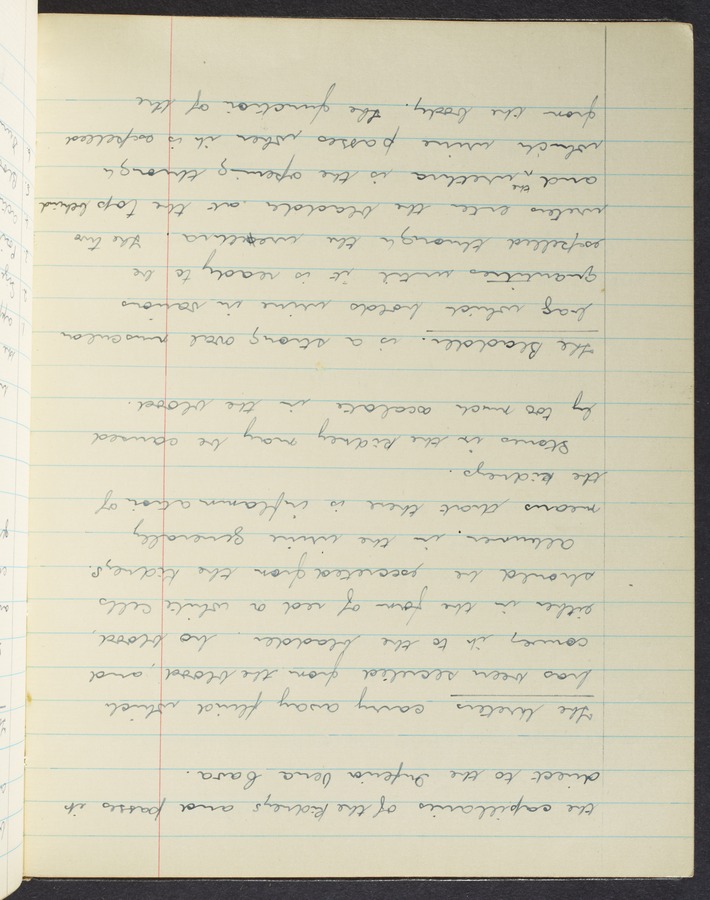 the capillaries of the kidneys and passes it
direct to the Inferior Vena Cava.
The Ureters carry away fluid which
has been secreted from the blood, and
convey it to the bladder. No blood,
either in the form of red or white cells
should be excreted from the kidneys.
Albumen in the urine generally
means that there is inflammation of
the kidneys.
Stones in the kidney may be caused
by too much oxalate in the blood.
The Bladder. is a strong oval muscular
bag which holds urine in various
quantities until it is ready to be
expelled through the urethra. The two
ureters enter the bladder at the top behind
and the urethra is the opening through
which urine passes when it is expelled
from the body. The function of the